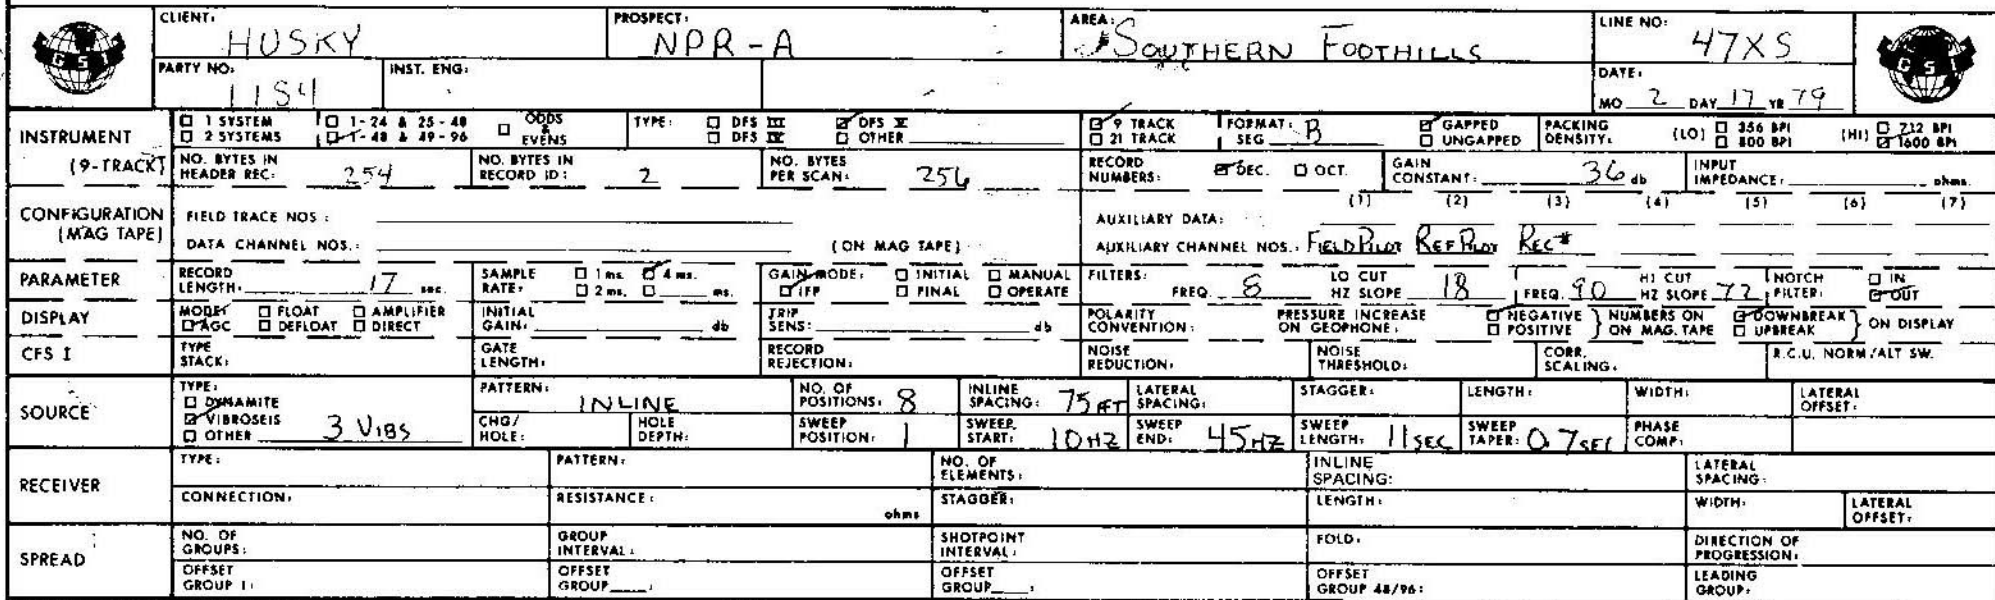 CLIENT: HUSKY PROSPECT: NPR-A AREA: SOUTHERN FOOTHILLS LINE NO: 47XS
GSI GSI
PARTY NO: 1154 INST. ENG: DATE: MO 2 DAY 17 YR 79
INSTRUMENT (9-TRACK)
☐ 1 SYSTEM ☐ 1-24 & 25-48 ☐ ODDS & EVENS TYPE: ☐ DFS III ☑ DFS V ☑ 9 TRACK FORMAT: SEG B ☑ GAPPED PACKING DENSITY: (LO) ☐ 356 BPI (HI) ☐ 712 BPI
☐ 2 SYSTEMS ☑ 1-48 & 49-96 ☐ DFS IV ☐ OTHER ☐ 21 TRACK ☐ UNGAPPED ☐ 800 BPI ☑ 1600 BPI
NO. BYTES IN HEADER REC: 254 NO. BYTES IN RECORD ID: 2 NO. BYTES PER SCAN: 256 RECORD NUMBERS: ☑ DEC. ☐ OCT. GAIN CONSTANT: 36 db INPUT IMPEDANCE: ohms.
CONFIGURATION (MAG TAPE)
FIELD TRACE NOS: AUXILIARY DATA: (1) (2) (3) (4) (5) (6) (7)
DATA CHANNEL NOS.: (ON MAG TAPE) AUXILIARY CHANNEL NOS.: FIELD PILOT REF PILOT REC#
PARAMETER RECORD LENGTH: 17 sec. SAMPLE RATE: ☐ 1 ms. ☑ 4 ms. ☐ 2 ms. ☐ ms. GAIN MODE: ☐ INITIAL ☐ MANUAL ☑ IFP ☐ FINAL ☐ OPERATE FILTERS: FREQ. 8 LO CUT HZ SLOPE 18 FREQ. 90 HI CUT HZ SLOPE 72 NOTCH FILTER: ☐ IN ☑ OUT
DISPLAY MODE: ☐ FLOAT ☐ AMPLIFIER ☑ AGC ☐ DEFLOAT ☐ DIRECT INITIAL GAIN: db TRIP SENS: db POLARITY CONVENTION: PRESSURE INCREASE ON GEOPHONE: ☑ NEGATIVE ☐ POSITIVE } NUMBERS ON MAG. TAPE ☑ DOWNBREAK ☐ UPBREAK } ON DISPLAY
CFS I TYPE STACK: GATE LENGTH: RECORD REJECTION: NOISE REDUCTION: NOISE THRESHOLD: CORR. SCALING: R.C.U. NORM/ALT SW.
SOURCE TYPE: ☐ DYNAMITE ☑ VIBROSEIS ☐ OTHER 3 VIBS
PATTERN: INLINE NO. OF POSITIONS: 8 INLINE SPACING: 75 FT LATERAL SPACING: STAGGER: LENGTH: WIDTH: LATERAL OFFSET:
CHG/HOLE: HOLE DEPTH: SWEEP POSITION: 1 SWEEP START: 10HZ SWEEP END: 45HZ SWEEP LENGTH: 11SEC SWEEP TAPER: 0.7SEC PHASE COMP:
RECEIVER TYPE: PATTERN: NO. OF ELEMENTS: INLINE SPACING: LATERAL SPACING:
CONNECTION: RESISTANCE: ohms STAGGER: LENGTH: WIDTH: LATERAL OFFSET:
SPREAD NO. OF GROUPS: GROUP INTERVAL: SHOTPOINT INTERVAL: FOLD: DIRECTION OF PROGRESSION:
OFFSET GROUP 1: OFFSET GROUP___: OFFSET GROUP___: OFFSET GROUP 48/96: LEADING GROUP: